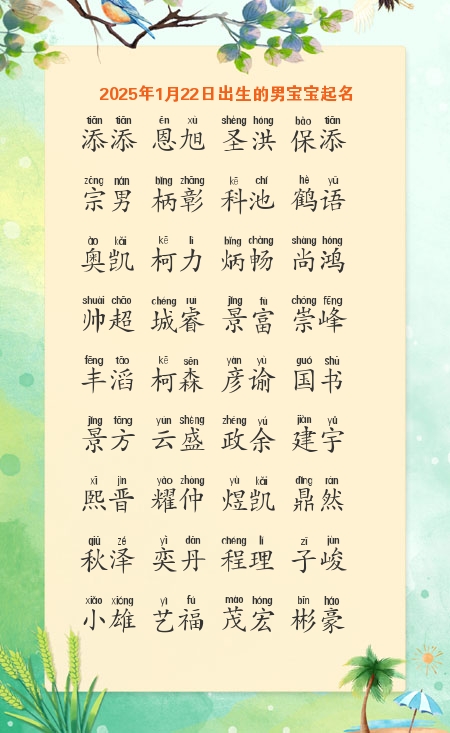 2025年1月22日出生的男宝宝起名
tiān tiān ēn xù shèng hóng bǎo tiān
添添 恩旭 圣洪 保添
zōng nán bǐng zhāng kē chí hè yǔ
宗男 柄彰 科池 鹤语
ào kǎi kē lì bǐng chàng shàng hóng
奥凯 柯力 炳畅 尚鸿
shuài chāo chéng ruì jǐng fù chóng fēng
帅超 城睿 景富 崇峰
fēng tāo kē sēn yàn yù guó shū
丰滔 柯森 彦谕 国书
jǐng fāng yún shèng zhèng yú jiàn yǔ
景方 云盛 政余 建宇
xī jìn yào zhòng yù kǎi dǐng rán
熙晋 耀仲 煜凯 鼎然
qiū zé yì dān chéng lǐ zǐ jùn
秋泽 奕丹 程理 子峻
xiǎo xióng yì fú mào hóng bīn háo
小雄 艺福 茂宏 彬豪